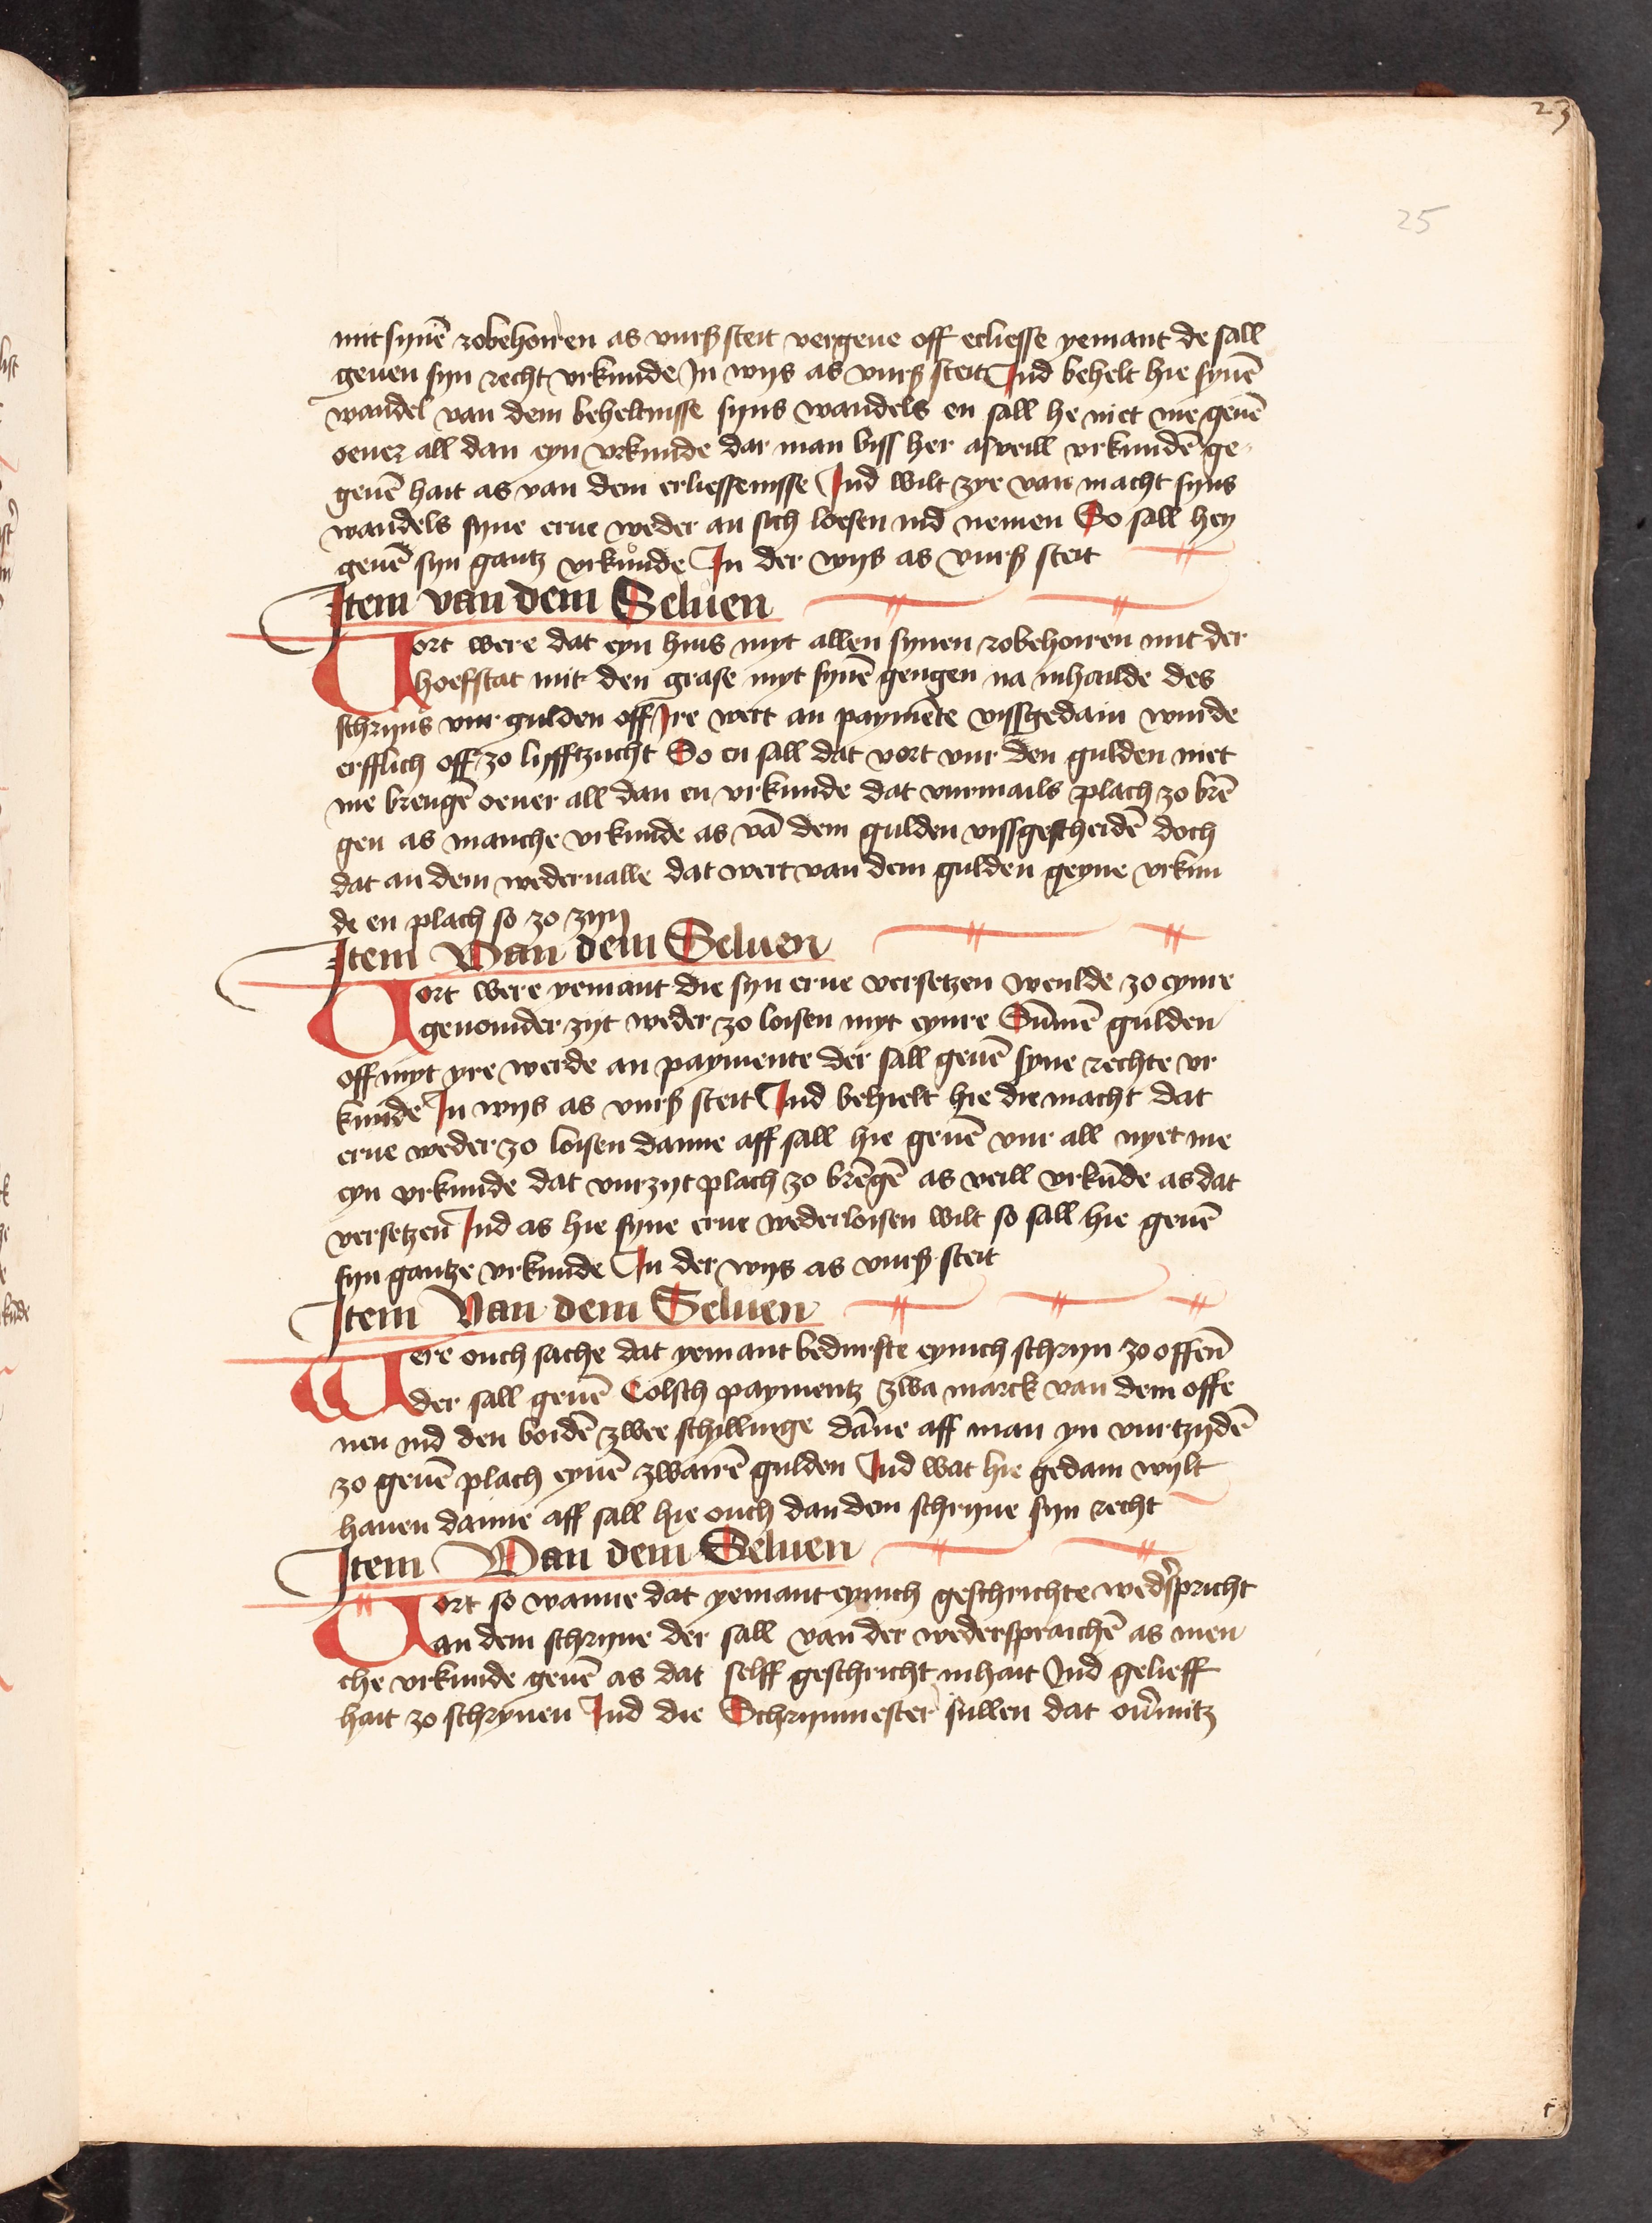 23
25
mit synē zobehoiren as vurß steit vergeue off erliesse yemant de sall
geuen syn recht vrkunde Jn wys as vurß steit Jnd behelt hie synē
wandel van dem beheltnisse syns wandels en sall he niet me geuē
oeuer all dan eyn vrkunde dar man biss her asveill vrkundē ge
geuē hait as van dem erliessenisse Jnd wilt zye van macht syns
wandels syne erue weder an sich loesen ind nemen So sall hey
geuē syn gantz vrkunde Jn der wys as vurß steit
Jtem van dem Seluen
Vort were dat eyn huis myt allen synen zobehoiren mit der
hoefstat mit den grase myt synē gengen na inhailde des
schryns vur gulden off Jre wert an paymēte vissgedain wurde
erfflich off zo lijfftzucht So en sall dat vort vur den gulden niet
me brengē oeuer all dan en vrkunde dat vurmails plach zo brē
gen as manche vrkunde as vā dem gulden vissgescheidē doch
dat an dem wederualle dat wert van dem gulden geyne vrkun
de en plach so zo zyn
Jtem Van dem Seluen
Vort were yemant die syn erue versetzen weulde zo eynre
genoimder zyt weder zo loisen myt eynre Sūmē gulden
off myt yre werde an paymente der sall geuē syne rechte vr
kunde Jn wys as vurß steit Jnd behielt hie die macht dat
erue weder zo loisen danne aff sall hie geuē vur all nyet me
eyn vrkunde dat vurzyt plach zo brēgē as veill vrkūde as dat
versetzen Jnd as hie syne erue wederloisen wilt so sall hie geuē
syn gantze vrkunde Jn der wys as vurß steit
Jtem Van dem Seluen
Were ouch sache dat yemant bedurfte eynich schryn zo offenē
der sall geuē Colsch paymentz zwa marck van dem offe
nen ind den boidē zwee schyllinge dāne aff man yn vurtzydē
zo geuē plach eynē zwairē gulden Jnd wat hie gedain wylt
hauen danne aff sall hie ouch dan den schryne syn recht
Jtem Van dem Seluen
Vort so wanne dat yemant eynich geschrichte weds̄pricht
an dem schryne der sall van der wederspraichē as men
che vrkunde geuē as dat selff geschricht inhait Jnd gelieff
hait zo schrynen Jnd die Schrynmester sullen dat oūmitz